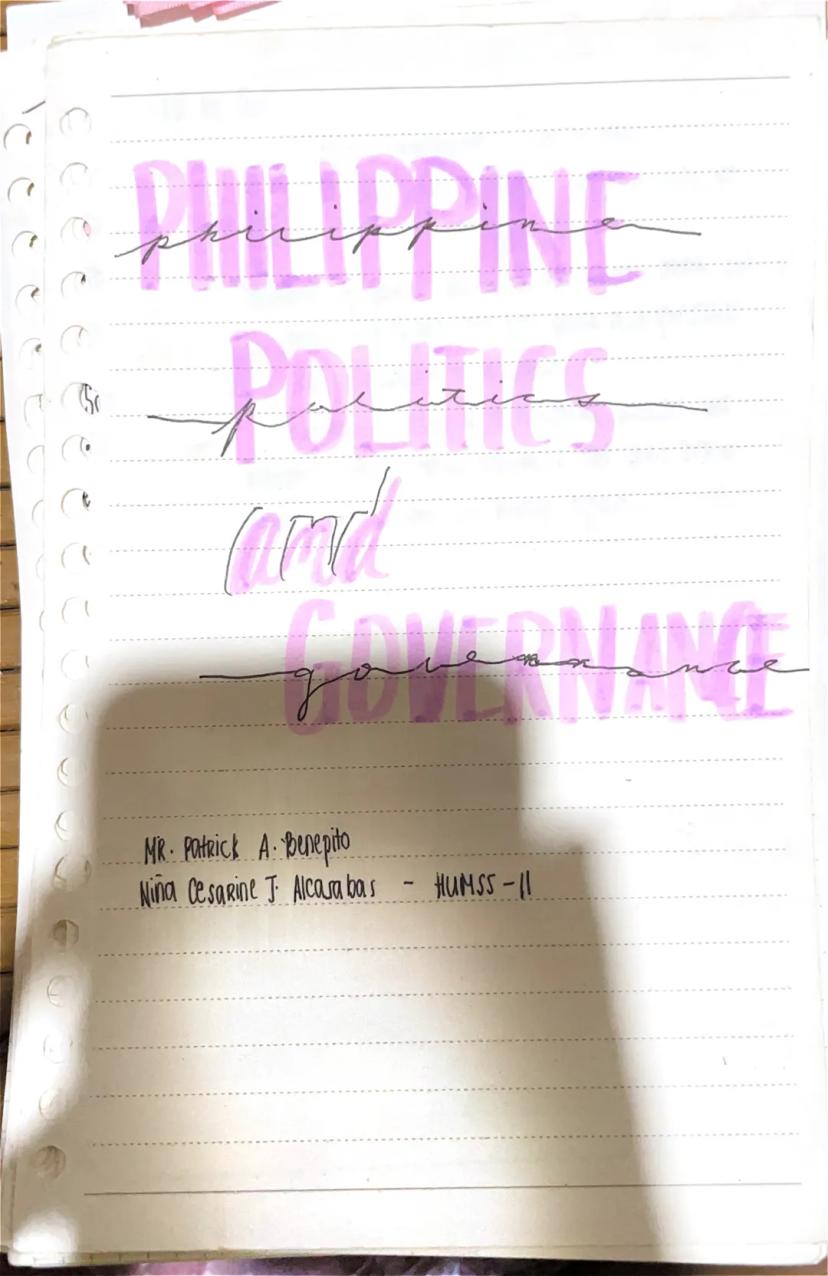 PHILIPPINE
philippine
POLITICS
politics
and
and
GOVERNANCE
governance
MR. Patrick A. Benepito
Niña Cesarine J. Alcasabas - HUMSS-11